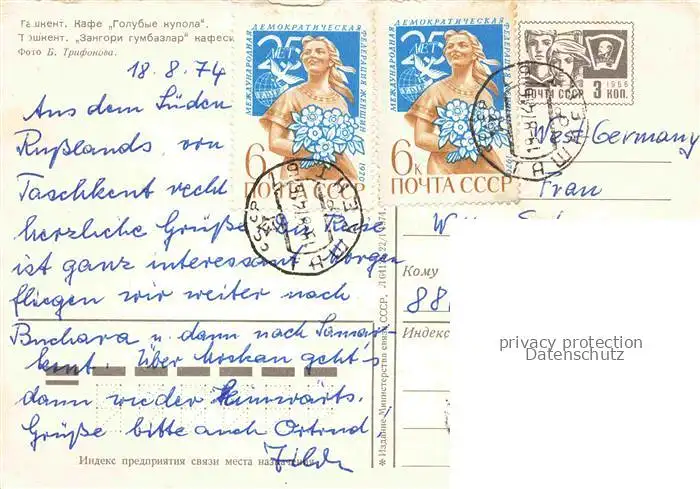 Ташкент. Кафе „Голубые купола“.
Тошкент. „Зангори гумбазлар“ кафеси
Фото Б. Трифонова.
18.8.74
Aus dem Süden
Rußlands, von
Taschkent recht
herzliche Grüße. Die Reise
ist ganz interessant. Morgen
fliegen wir weiter nach
Buchara u. dann nach Samar-
kant. Über Moskau geht's
dann wieder Heimwärts.
Grüße bitte auch Ortrud
МЕЖДУНАРОДНАЯ ДЕМОКРАТИЧЕСКАЯ ФЕДЕРАЦИЯ ЖЕНЩИН
25 ЛЕТ
1970
6к
ПОЧТА СССР
МЕЖДУНАРОДНАЯ ДЕМОКРАТИЧЕСКАЯ ФЕДЕРАЦИЯ ЖЕНЩИН
25 ЛЕТ
1970
6к
ПОЧТА СССР
1966
ПОЧТА СССР 3 КОП.
West Germany
Frau
Кому
88
Индекс
privacy protection
Datenschutz
Издание Министерства связи СССР.
Индекс предприятия связи места назначения